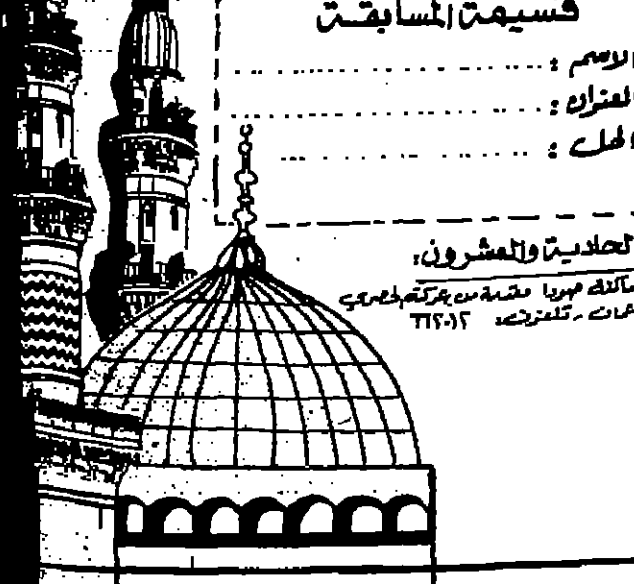 قسيمة المسابقة
الاسم :
العنوان :
الحل :
الحادية والعشرون:
مقدمة من شركة المصري